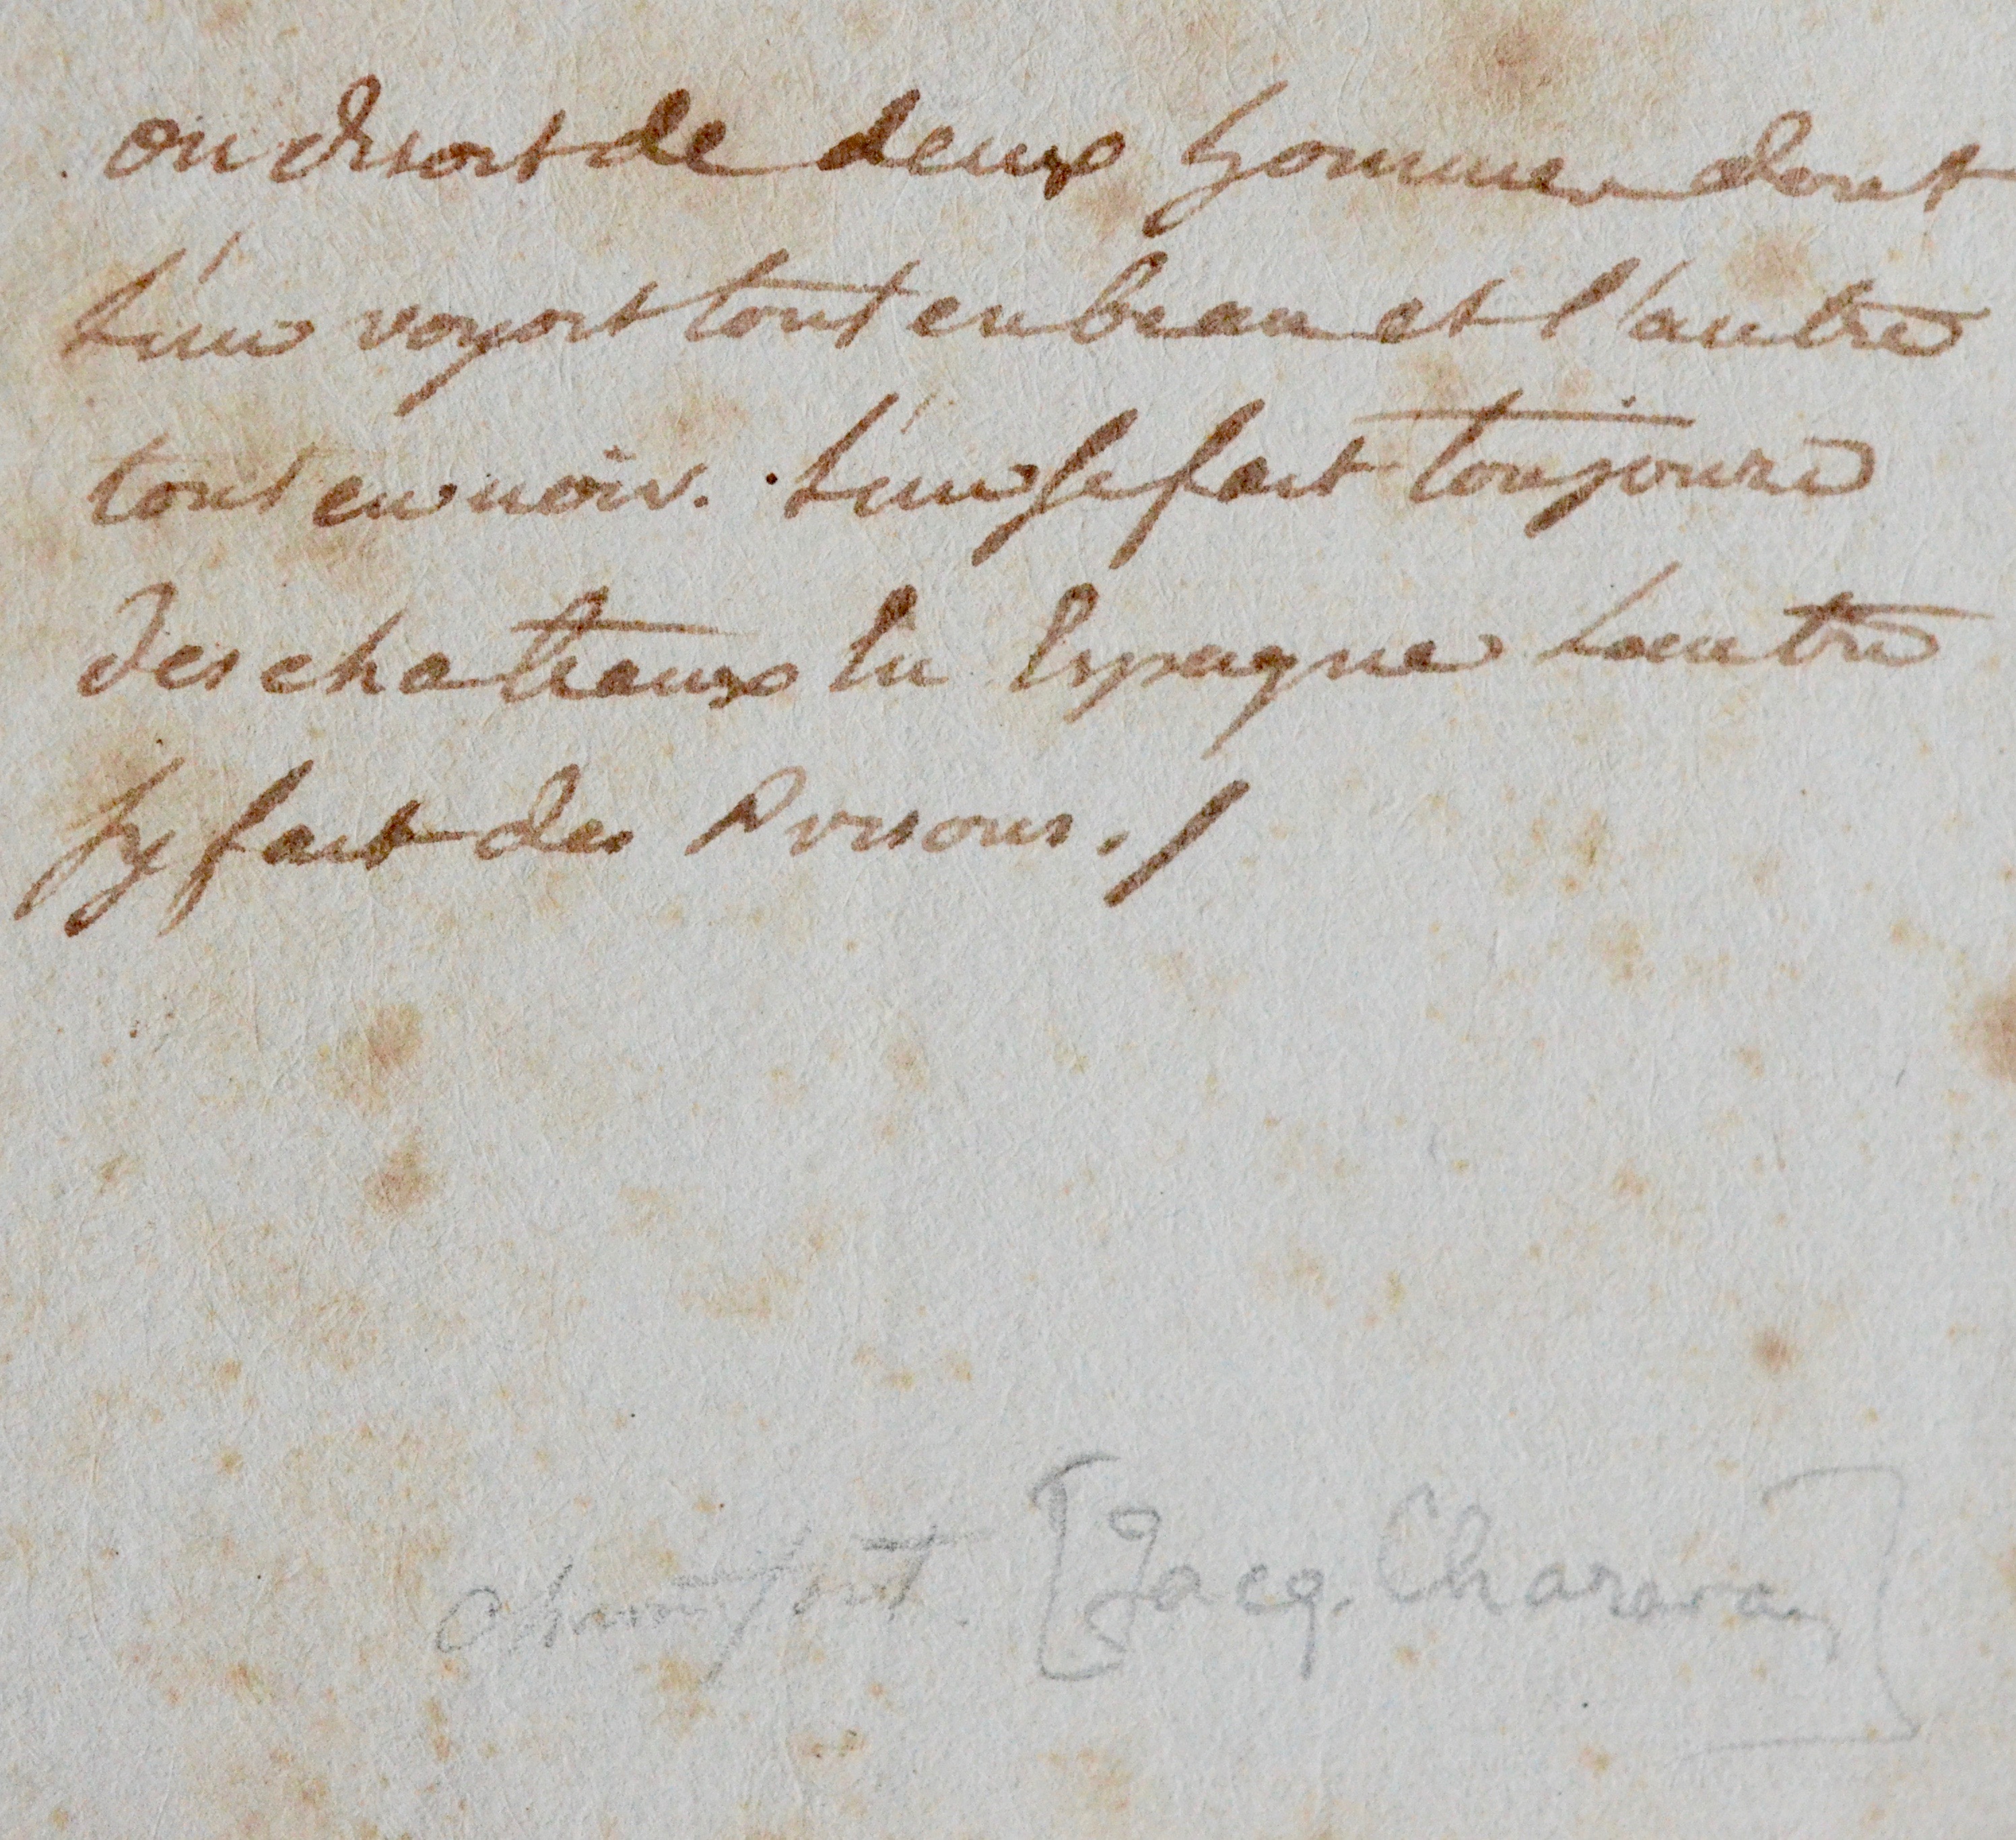 on disoit de deux hommes dont
L'un voyoit tout en beau et l'autre
tout en noir. L'un se fait toujours
des chateaux En Espagne L'autre
sy fait des Prisons./
Chamfort. [Jacq. Charavay]